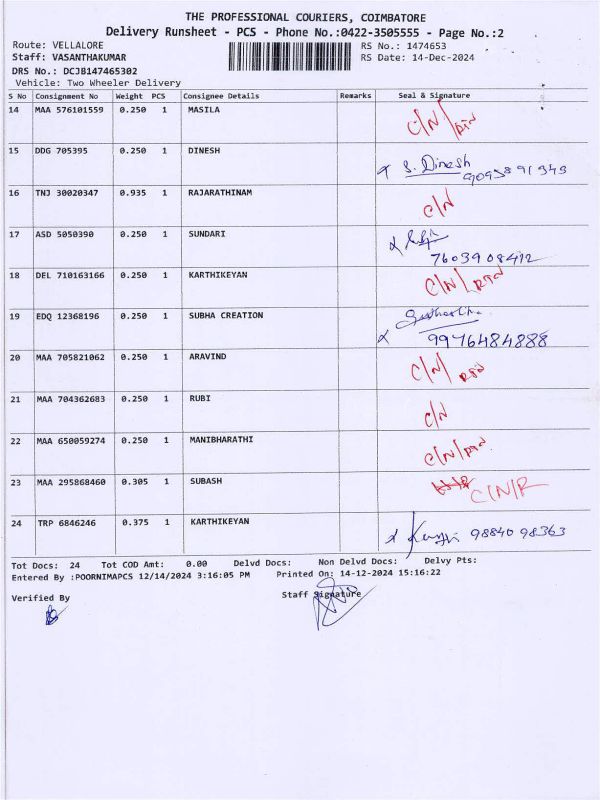 THE PROFESSIONAL COURIERS, COIMBATORE
Delivery Runsheet - PCS - Phone No.:0422-3505555 - Page No.:2
Route: VELLALORE RS No.: 1474653
Staff: VASANTHAKUMAR RS Date: 14-Dec-2024
DRS No.: DCJB147465302
Vehicle: Two Wheeler Delivery
S No Consignment No Weight PCS Consignee Details Remarks Seal & Signature
14 MAA 576101559 0.250 1 MASILA C/N/
15 DDG 705395 0.250 1 DINESH S. Dinesh
16 TNJ 30020347 0.935 1 RAJARATHINAM C/N
17 ASD 5050390 0.250 1 SUNDARI
7603908412
18 DEL 710163166 0.250 1 KARTHIKEYAN C/N/
19 EDQ 12368196 0.250 1 SUBHA CREATION
9976484888
20 MAA 705821062 0.250 1 ARAVIND C/N/
21 MAA 704362683 0.250 1 RUBI C/N
22 MAA 650059274 0.250 1 MANIBHARATHI C/N/
23 MAA 295868460 0.305 1 SUBASH C/N/R
24 TRP 6846246 0.375 1 KARTHIKEYAN 98840 98363
Tot Docs: 24 Tot COD Amt: 0.00 Delvd Docs: Non Delvd Docs: Delvy Pts:
Entered By :POORNIMAPCS 12/14/2024 3:16:05 PM Printed On: 14-12-2024 15:16:22
Verified By Staff Signature